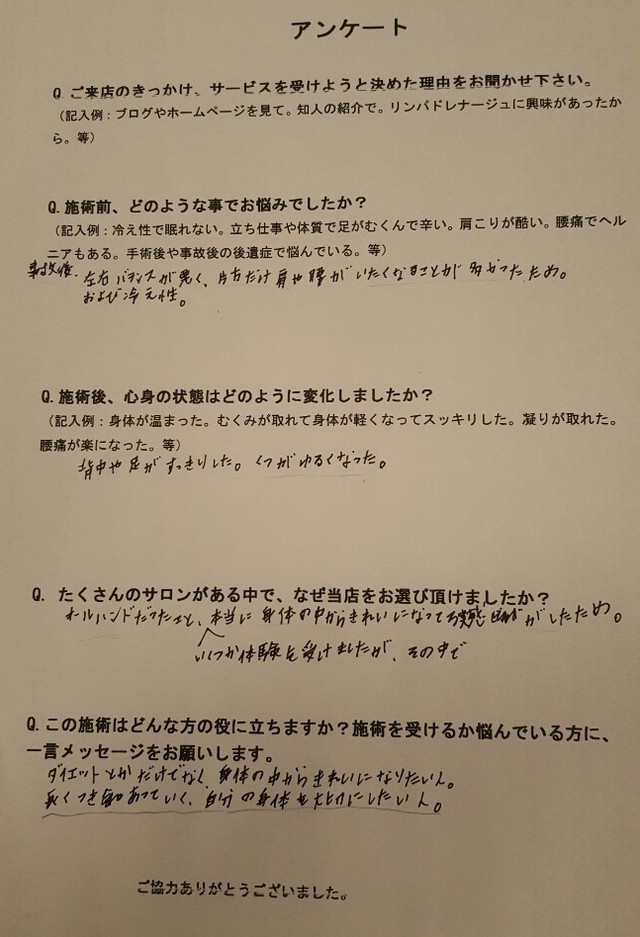 アンケート
Q.ご来店のきっかけ、サービスを受けようと決めた理由をお聞かせ下さい。
（記入例：ブログやホームページを見て。知人の紹介で。リンパドレナージュに興味があったか
ら。等）
Q.施術前、どのような事でお悩みでしたか？
（記入例：冷え性で眠れない。立ち仕事や体質で足がむくんで辛い。肩こりが酷い。腰痛でヘル
ニアもある。手術後や事故後の後遺症で悩んでいる。等）
事故後、左右バランスが悪く、片方だけ肩や腰がいたくなることが多かったため。
および冷え性。
Q.施術後、心身の状態はどのように変化しましたか？
（記入例：身体が温まった。むくみが取れて身体が軽くなってスッキリした。凝りが取れた。
腰痛が楽になった。等）
背中や足がすっきりした。くつがゆるくなった。
Q. たくさんのサロンがある中で、なぜ当店をお選び頂けましたか？
オールハンドだったことと、本当に身体の中からきれいになってる感じがしたため。
いくつか体験を受けましたが、その中で
Q.この施術はどんな方の役に立ちますか？施術を受けるか悩んでいる方に、
一言メッセージをお願いします。
ダイエットとかだけでなく、身体の中からきれいになりたい人。
長くつき合っていく、自分の身体を大切にしたい人。
ご協力ありがとうございました。